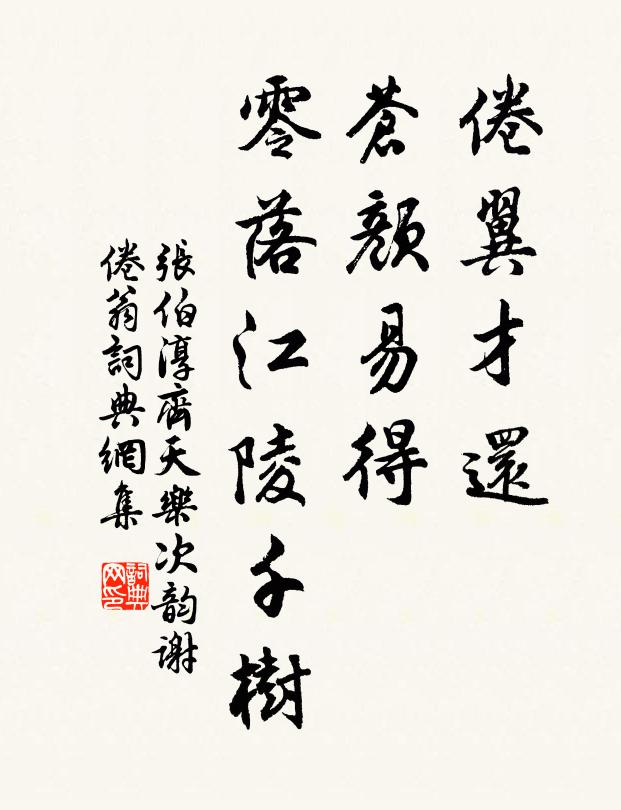 倦翼才還
蒼顏易得
零落江陵千樹
張伯淳齊天樂次韵謝
倦翁詞典網集
詞典
网印